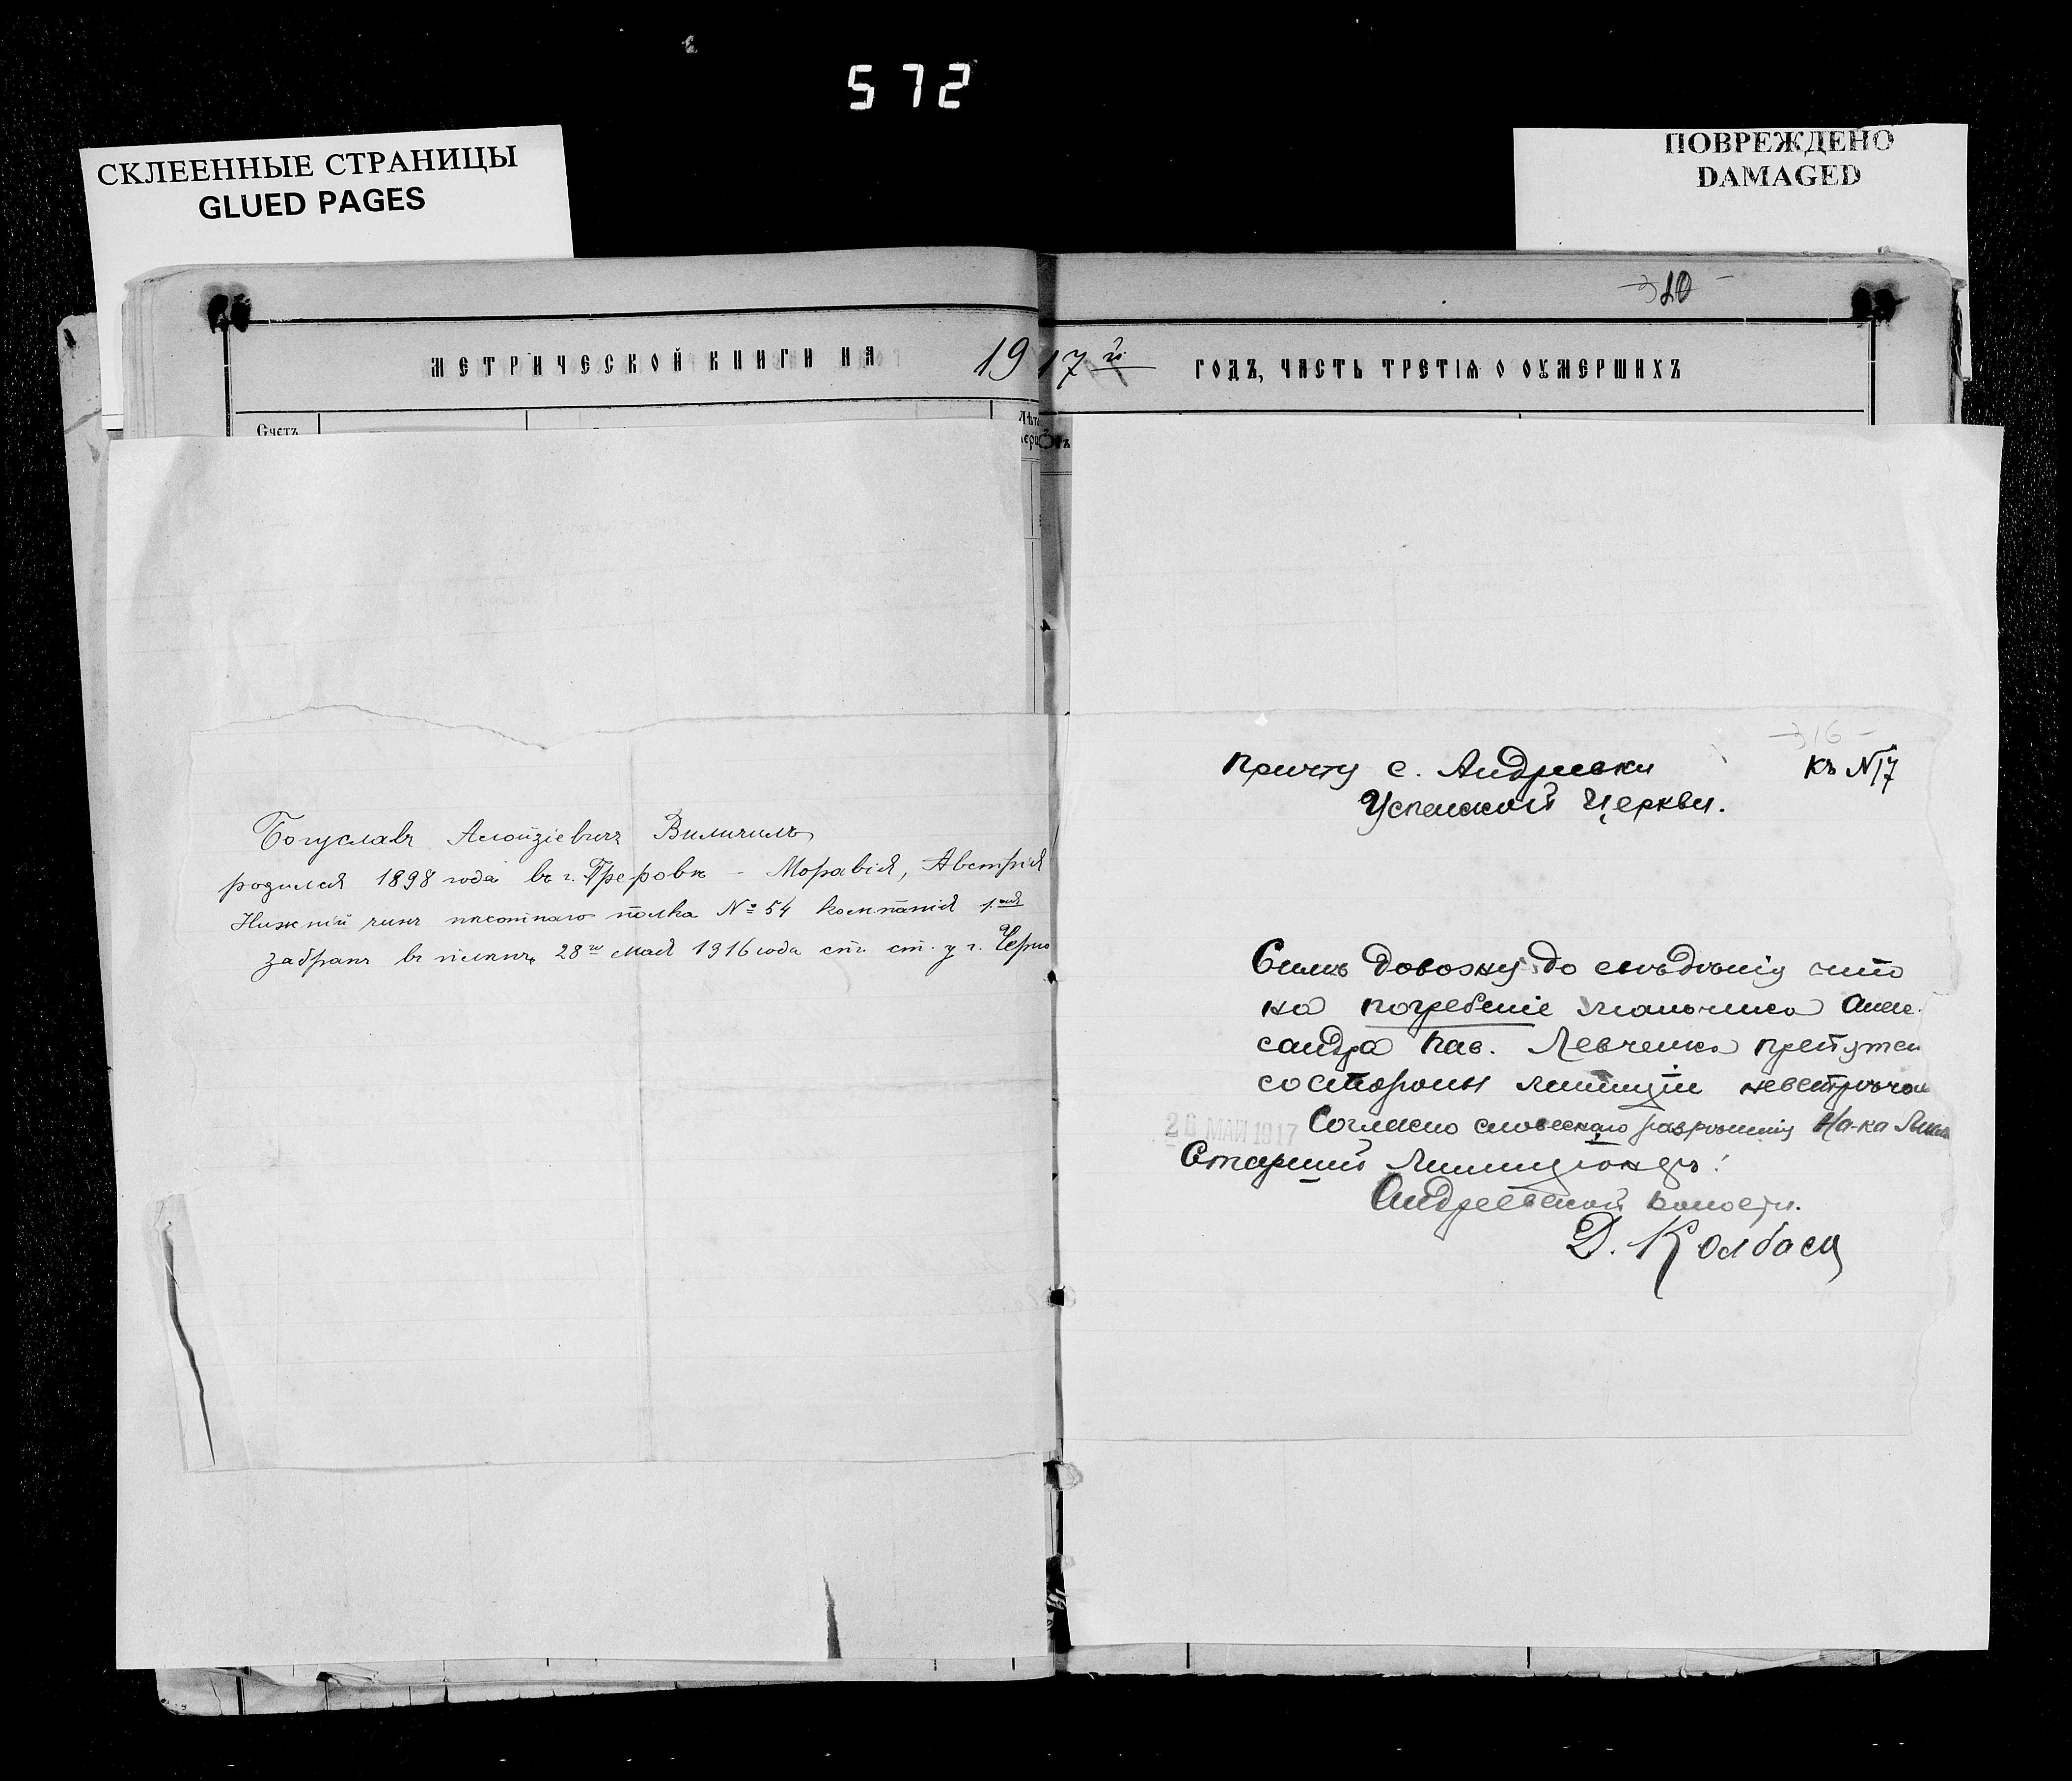 572
СКЛЕЕННЫЕ СТРАНИЦЫ
GLUED PAGES
ПОВРЕЖДЕНО
DAMAGED
10
МЕТРИЧЕСКОЙ КНИГИ НА 1917й ГОДЪ, ЧАСТЬ ТРЕТІЯ О ОУМЕРШИХЪ
Счетъ
Богуславъ Алойзіевичъ Виличилъ
родился 1898 года въ г. Преровѣ - Моравія, Австрія
Нижній чинъ пѣхотнаго полка № 54 компанія 1ая
забранъ въ плѣнъ 28го мая 1916 года ст. ст. у г. Черно
316
Причту с. Андреевки
Къ № 17
Успенской Церкви.
Симъ довожу до свѣдѣнія что
на погребеніе мальчика Алек.
сандра Пав. Левченко препятст
со стороны милиціи невстрѣча
26 МАЙ 1917
Согласно словеснаго разрѣшенія На-ка Мил
Старшій Милиціонеръ
Андреевской волости.
Д. Колбаса